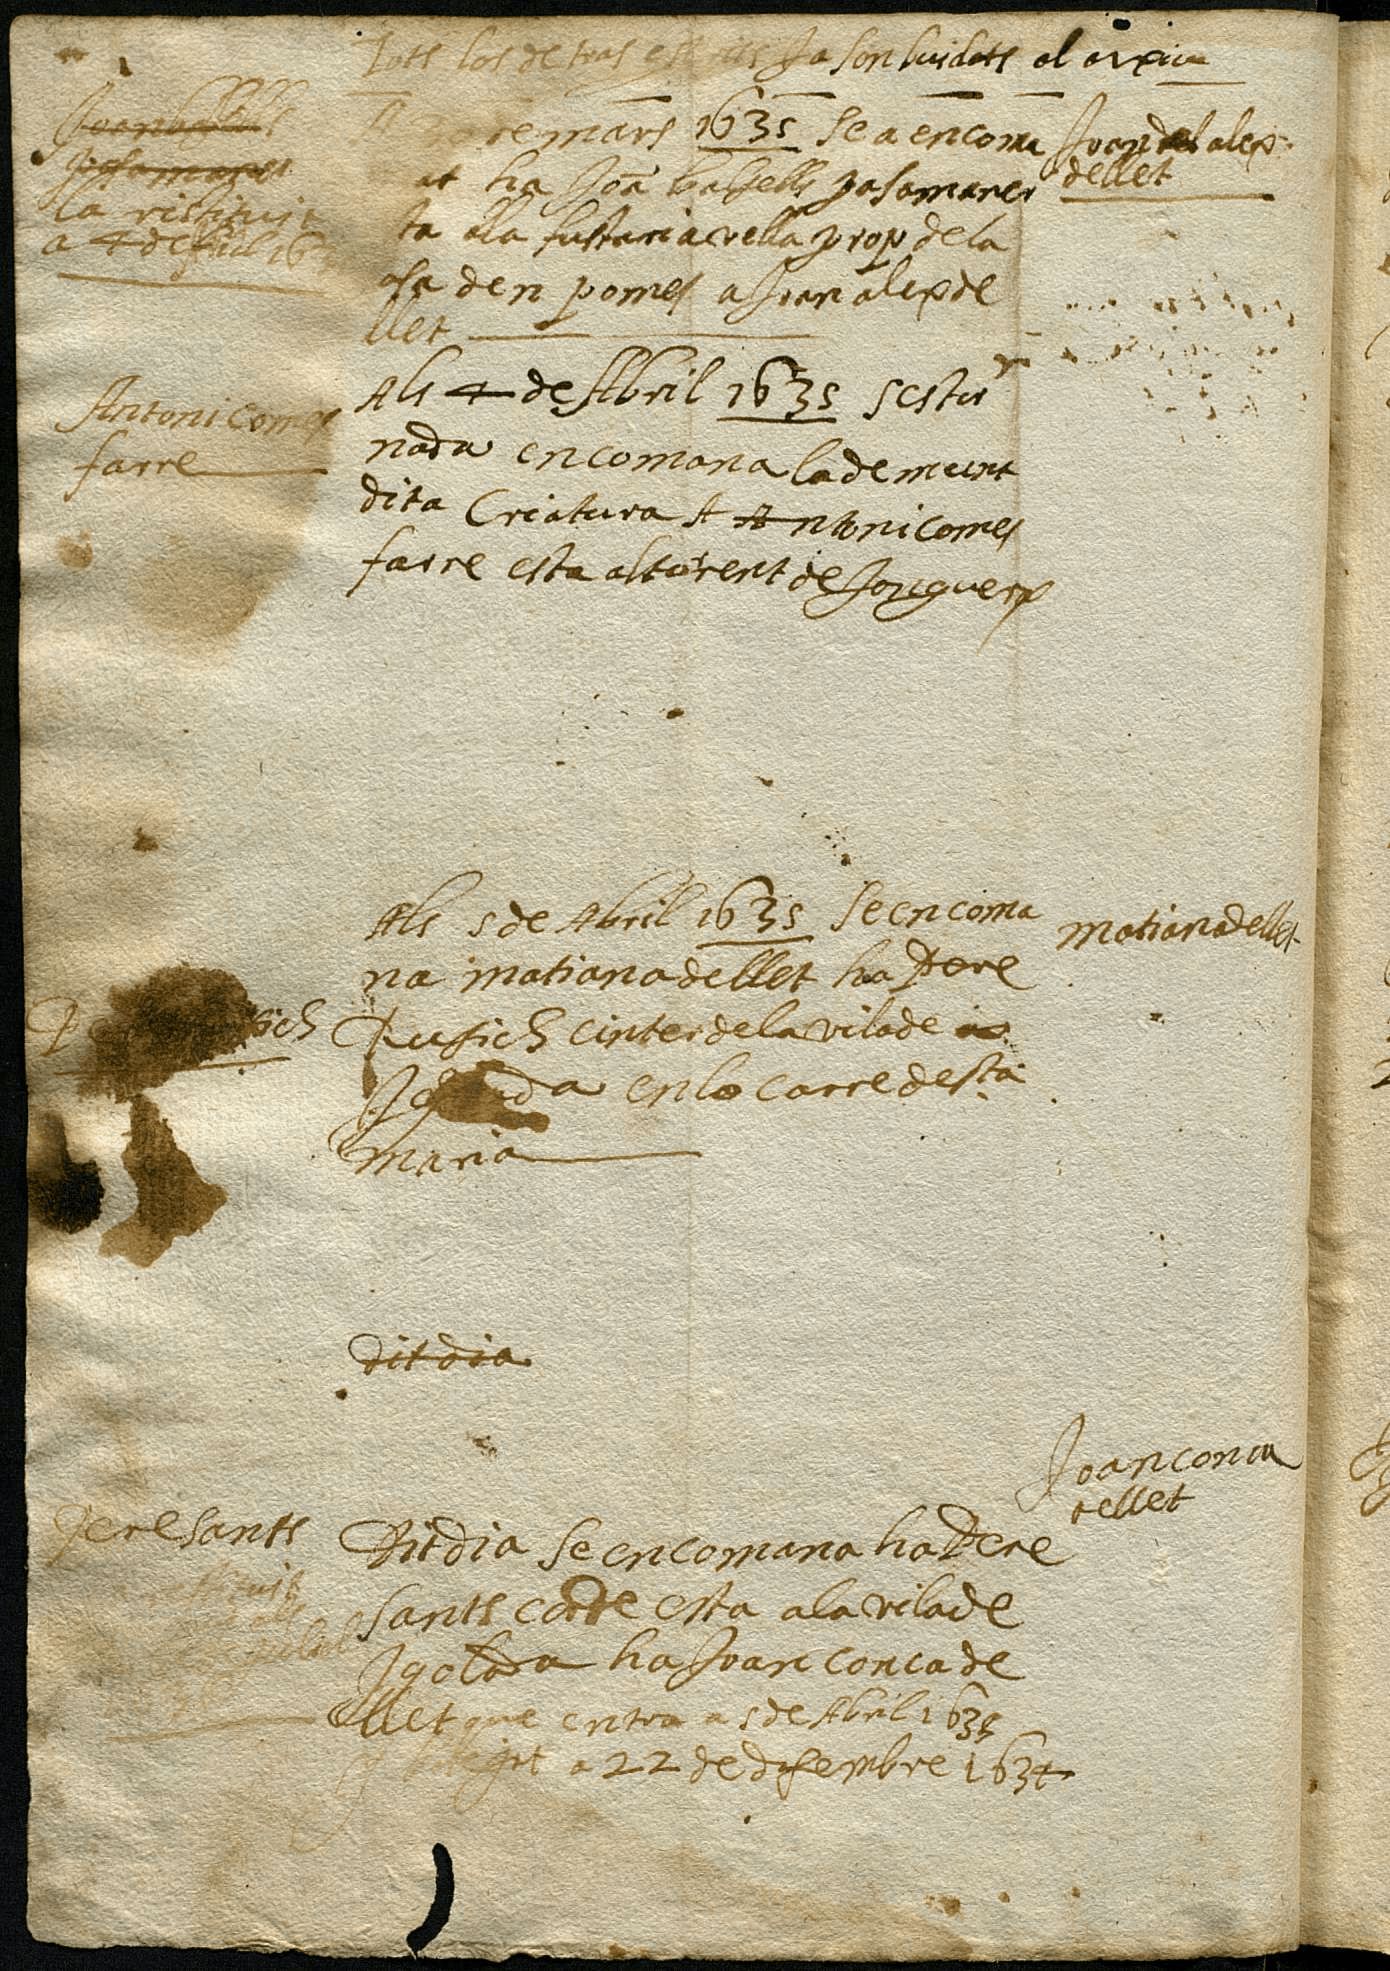 Tots los detras escrits Ja son buidats al arxiu
Joan balsells
pasamaner
la ristituit
a 4 de Abril 163
de mars 1635 se a encoma
at ha Joā balsells pasamaner
ta ala fustaria vella prop de la
casa den pomes a Joan alexde
llet
Joan del alex
dellet
Antoni comes
farre
Als 4 de Abril 1635 sestor
nada encomana la demunt
dita Criatura A Antoni comes
farre esta al torent de Jonqueres
Als 5 de Abril 1635 se encoma
na matiana dellet ha Pere
Rusich cinter de la vila de
Igolada en lo carre de sta
maria
matiana dellet
P sich
dit dia
Joan conca
dellet
Pere sants
Dit dia se encomana ha Pere
sants corde esta a la vila de
Igolada ha Joan conca de
llet que entra a 5 de Abril 1635
batejat a 22 de desembre 1634